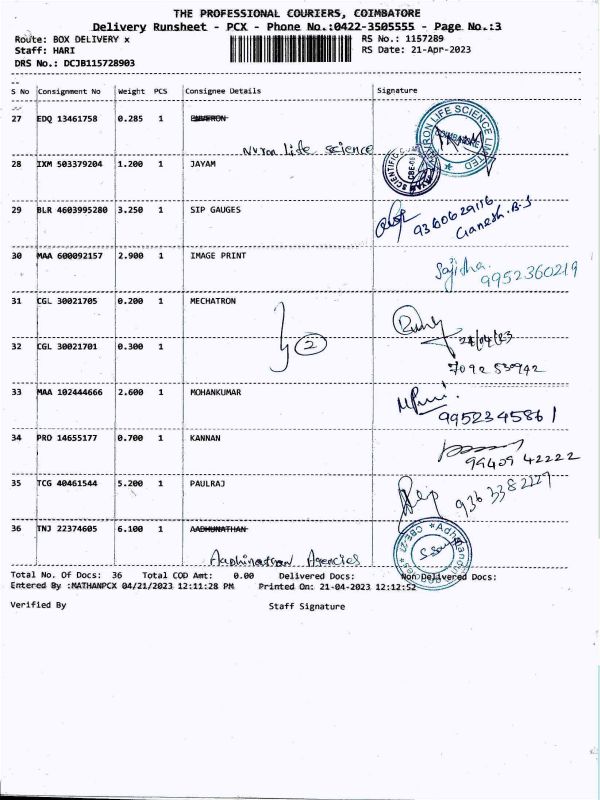 THE PROFESSIONAL COURIERS, COIMBATORE
Delivery Runsheet - PCX - Phone No.:0422-3505555 - Page No.:3
Route: BOX DELIVERY x RS No.: 1157289
Staff: HARI RS Date: 21-Apr-2023
DRS No.: DCJB115728903
S No Consignment No Weight PCS Consignee Details Signature
27 EDQ 13461758 0.285 1
Nuron Life science
28 IXM 503379204 1.200 1 JAYAM
29 BLR 4603995280 3.250 1 SIP GAUGES
9360629116
Ganesh.B.S
30 MAA 600092157 2.900 1 IMAGE PRINT
Sajitha.
9952360219
31 CGL 30021705 0.200 1 MECHATRON
2
21/04/23
32 CGL 30021701 0.300 1
7092 530942
33 MAA 102444666 2.600 1 MOHANKUMAR
9952345861
34 PRO 14655177 0.700 1 KANNAN
99409 42222
35 TCG 40461544 5.200 1 PAULRAJ
9363382227
36 TNJ 22374605 6.100 1 AADHUNATHAN
Agencies
Total No. Of Docs: 36 Total COD Amt: 0.00 Delivered Docs: Non Delivered Docs:
Entered By :MATHANPCX 04/21/2023 12:11:28 PM Printed On: 21-04-2023 12:12:52
Verified By Staff Signature